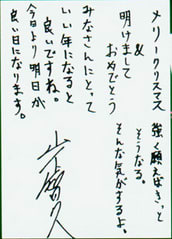 メリークリスマス
&
明けまして
おめでとう
みなさんにとって
いい年になると
良いですね。
今日より明日が
良い日になります。
強く願えばきっと
そうなる。
そんな気がするよ。
山下智久